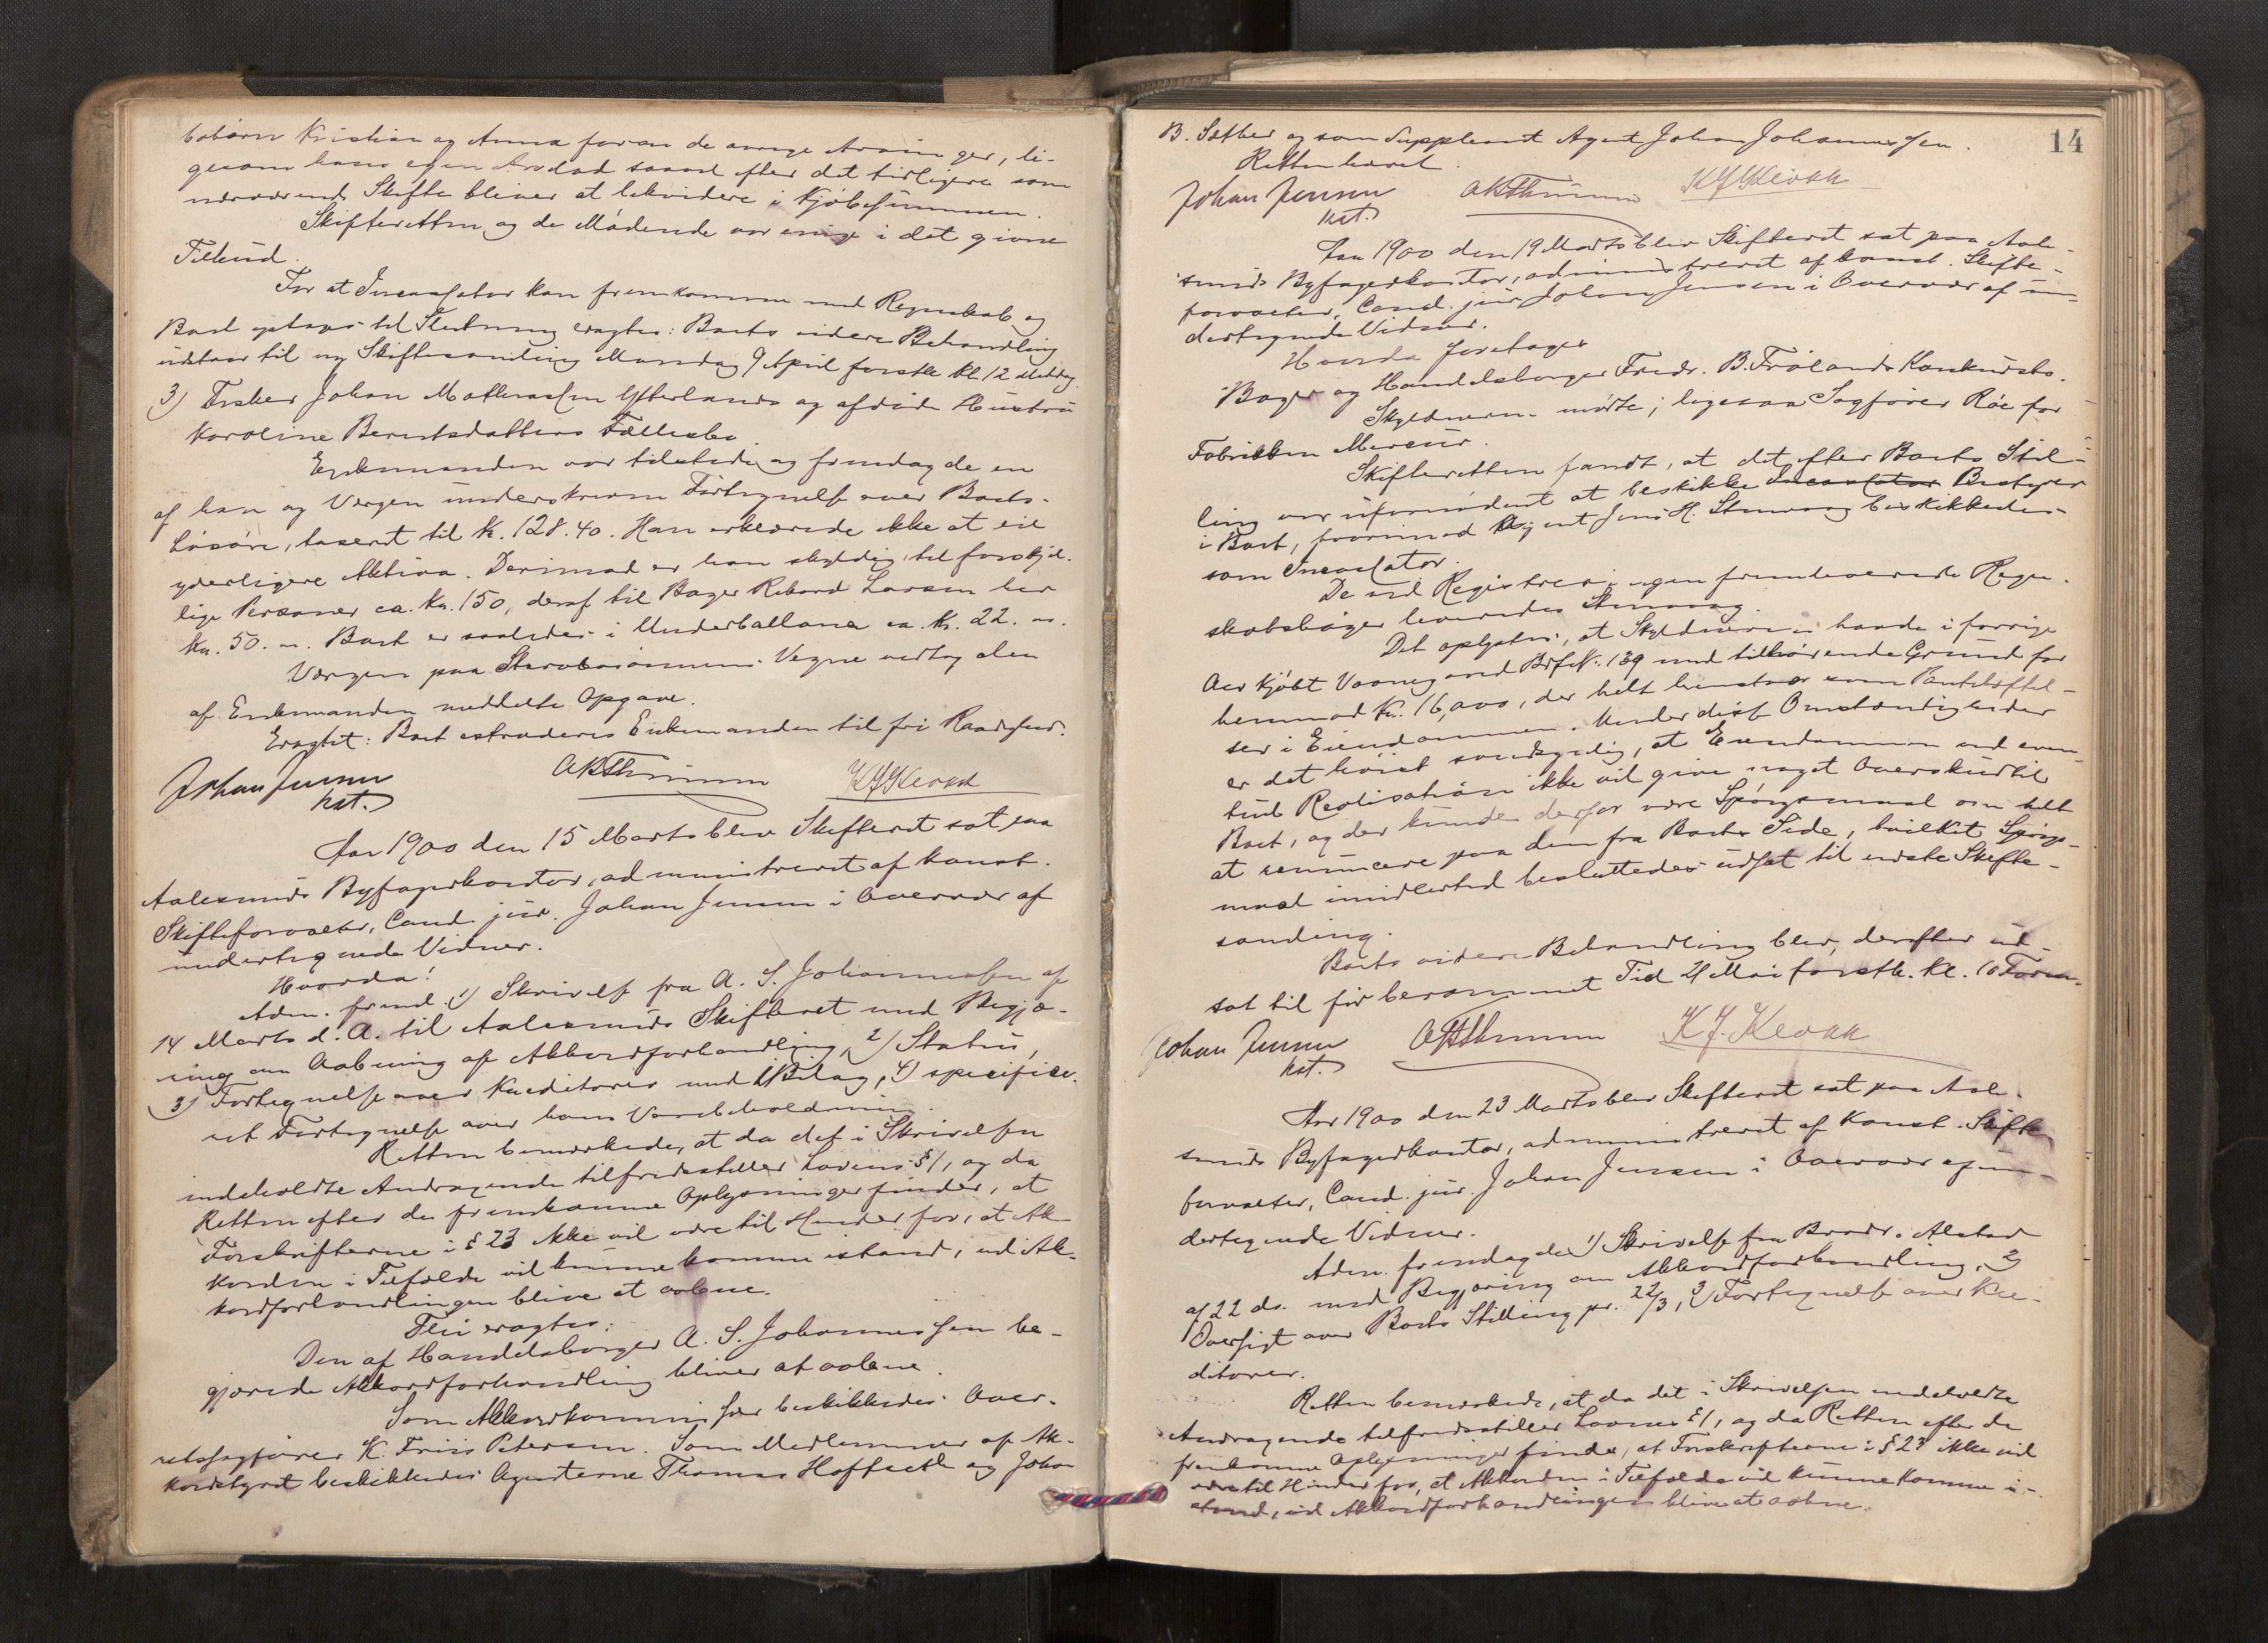 Kristian og Anna foran de øvrige Arvinger, li-
gesom hans egen Arvelod saavel efter det tidligere som
nærværende Skifte bliver at likvidere i Kjøbesummen.
Skifteretten og de Mødende var enige i det givne
Tilbud.
For at Incassator kan fremkomme med Regnskab og
Boet optages til Slutning eragtes: Boets videre Behandling
udstaar til ny Skiftesamling Mandag 9 April førstk. Kl. 12 Middag.
3) Fisker Johan Mathiassen Ytterlands og afdøde Hustru
Karoline Berntsdatters Fællesbo.
Enkemanden var tilstede og fremlagde en
af ham og Vergen underskreven Fortegnelse over Boets
Løsøre, taxeret til Kr. 128.40. Han erklærede ikke at eie
yderligere Aktiva. Derimod er han skyldig til forskjel-
lige Personer ca. Kr. 150, deraf til Bager Rikard Larsen her
Kr. 50. Boet er saaledes i Underballance ca. Kr. 22.
Vergen paa Vegne vedtog den
af Enkemanden meddelte Opgave.
Eragtet: Boet extraderes Enkemanden til fri Raadighed.
Johan Jensen
kst.
K J Kleven
Aar 1900 den 15 Marts blev Skifteret sat paa
Aalesunds Byfogedkontor, administreret af konst.
Skifteforvalter, Cand. jur. Johan Jensen i Overvær af
undertegnede Vidner.
Hvorda!
Adm. freml. 1) Skrivelse fra A. S. Johannessen af
14 Marts d. A. til Aalesunds Skifteret med Begjæ-
ring om Aabning af Akkordforhandling, 2) Status,
3) Fortegnelse over Kreditorer med 1 Bilag, 4) specifice-
ret Fortegnelse over hans Varebeholdning.
Retten bemærkede, at da det i Skrivelsen
indeholdte Andragende tilfredsstiller Lovens § 1, og da
Retten efter de fremkomne Oplysninger finder, at
Forskrifterne i § 23 ikke vil være til Hinder for, at Ak-
korden i Tilfælde vil kunne komme istand, vil Ak-
kordforhandlingen blive at aabne.
Thi eragtes:
Den af Handelsborger A. S. Johannessen be-
gjærede Akkordforhandling bliver at aabne.
Som Akkordkommissær beskikkedes Over-
retssagfører K. Friis Petersen. Som Medlemmer af Ak-
kordstyret beskikkedes Agenterne Thomas Hoffseth og Johan
14
B. Sæther og som Suppleant Agent Johan Johannessen.
Retten hævet.
Johan Jensen
kst.
K J Kleven
Aar 1900 den 19 Marts blev Skifteret sat paa Aale-
sunds Byfogedkontor, administreret af konst. Skifte-
forvalter, Cand. jur. Johan Jensen i Overvær af un-
dertegnede Vidner.
Hvorda foretoges
Bager og Handelsborger Fredr. B. Frølands Konkursbo.
Skyldneren mødte; ligesaa Sagfører Røe for
Fabrikken Mercur.
Skifteretten fandt, at det efter Boets Stil-
ling var ufornødent at beskikke Incassator Bestyrer
i Boet, hvorimod Agent Jens H. Stenvaag beskikkedes
som Incassator.
De ved Registreringen fremleverede Regn-
skabsbøger leveredes Stenvaag.
Det oplystes, at Skyldneren havde i forrige
Aar kjøbt Vaanegaard Brf.N. 139 med tilhørende Grund for
henimod Kr. 16,000, der helt henstaar som Pantehæftel-
ser i Eiendommen. Under disse Omstændigheder
er det høist sandsynlig, at Eiendommen ved even-
tuel Realisation ikke vil give noget Overskud til
Boet, og der kunde derfor være Spørgsmaal om helt
at renuncere paa den fra Boets Side, hvilket Spørgs-
maal imidlertid besluttedes udsat til næste Skifte-
samling.
Boets videre Behandling blev derefter ud-
sat til før berammet Tid 21 Mai førstk. Kl. 10 Form.
Johan Jensen
kst.
K. J. Kleven
Aar 1900 den 23 Marts blev Skifteret sat paa Aale-
sunds Byfogedkontor, administreret af Konst. Skifte-
forvalter, Cand. jur. Johan Jensen i Overvær af un-
dertegnede Vidner.
Adm. fremlagde 1) Skrivelse fra Brødr. Alstad
af 22 ds. med Begjæring om Akkordforhandling, 2)
Oversigt over Boets Stilling pr. 22/3, 3) Fortegnelse over Kre-
ditorer.
Retten bemærkede, at da det i Skrivelsen indeholdte
Andragende tilfredsstiller Lovens § 1, og da Retten efter de
fremkomne Oplysninger finder, at Forskrifterne i § 23 ikke vil
være til Hinder for, at Akkorden i Tilfælde vil kunne komme i-
stand, vil Akkordforhandlingen blive at aabne.